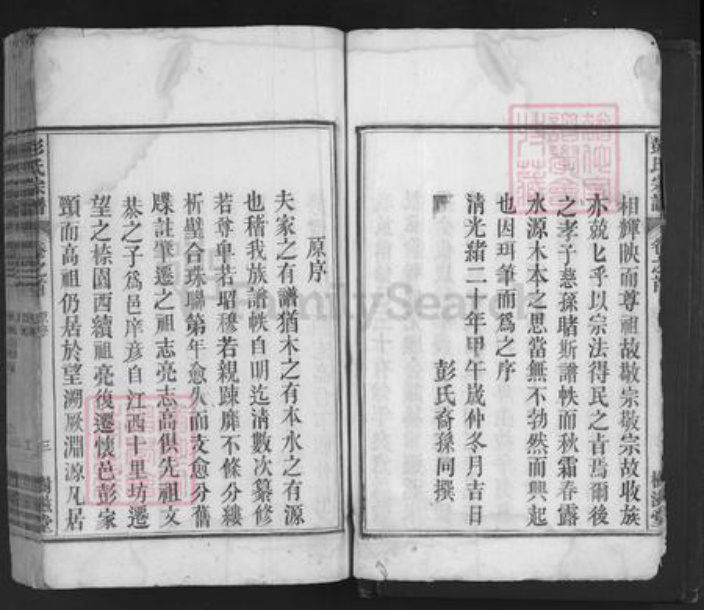 彭氏宗譜
相輝映而尊祖故敬宗敬宗故收族
亦兢兢乎以宗法得民之旨焉爾後
之孝子慈孫睹斯譜帙而秋霜春露
水源木本之思當無不勃然而興起
也因珥筆而為之序
清光緒二十年甲午歲仲冬月吉日
彭氏裔孫同撰
原序
夫家之有譜猶木之有本水之有源
也稽我族譜帙自明迄清數次纂修
若尊卑若昭穆若親踈靡不條分縷
析壁合珠聯第年愈久而支愈分舊
牒註肇遷之祖志亮志高俱先祖文
恭之子為邑庠彥自江西十里坊遷
望之檨園西續祖亮復遷懷邑彭家
頸而高祖仍居於望溯厥淵源凡居
彭氏宗譜
卷之首
原序
三
FamilySearch